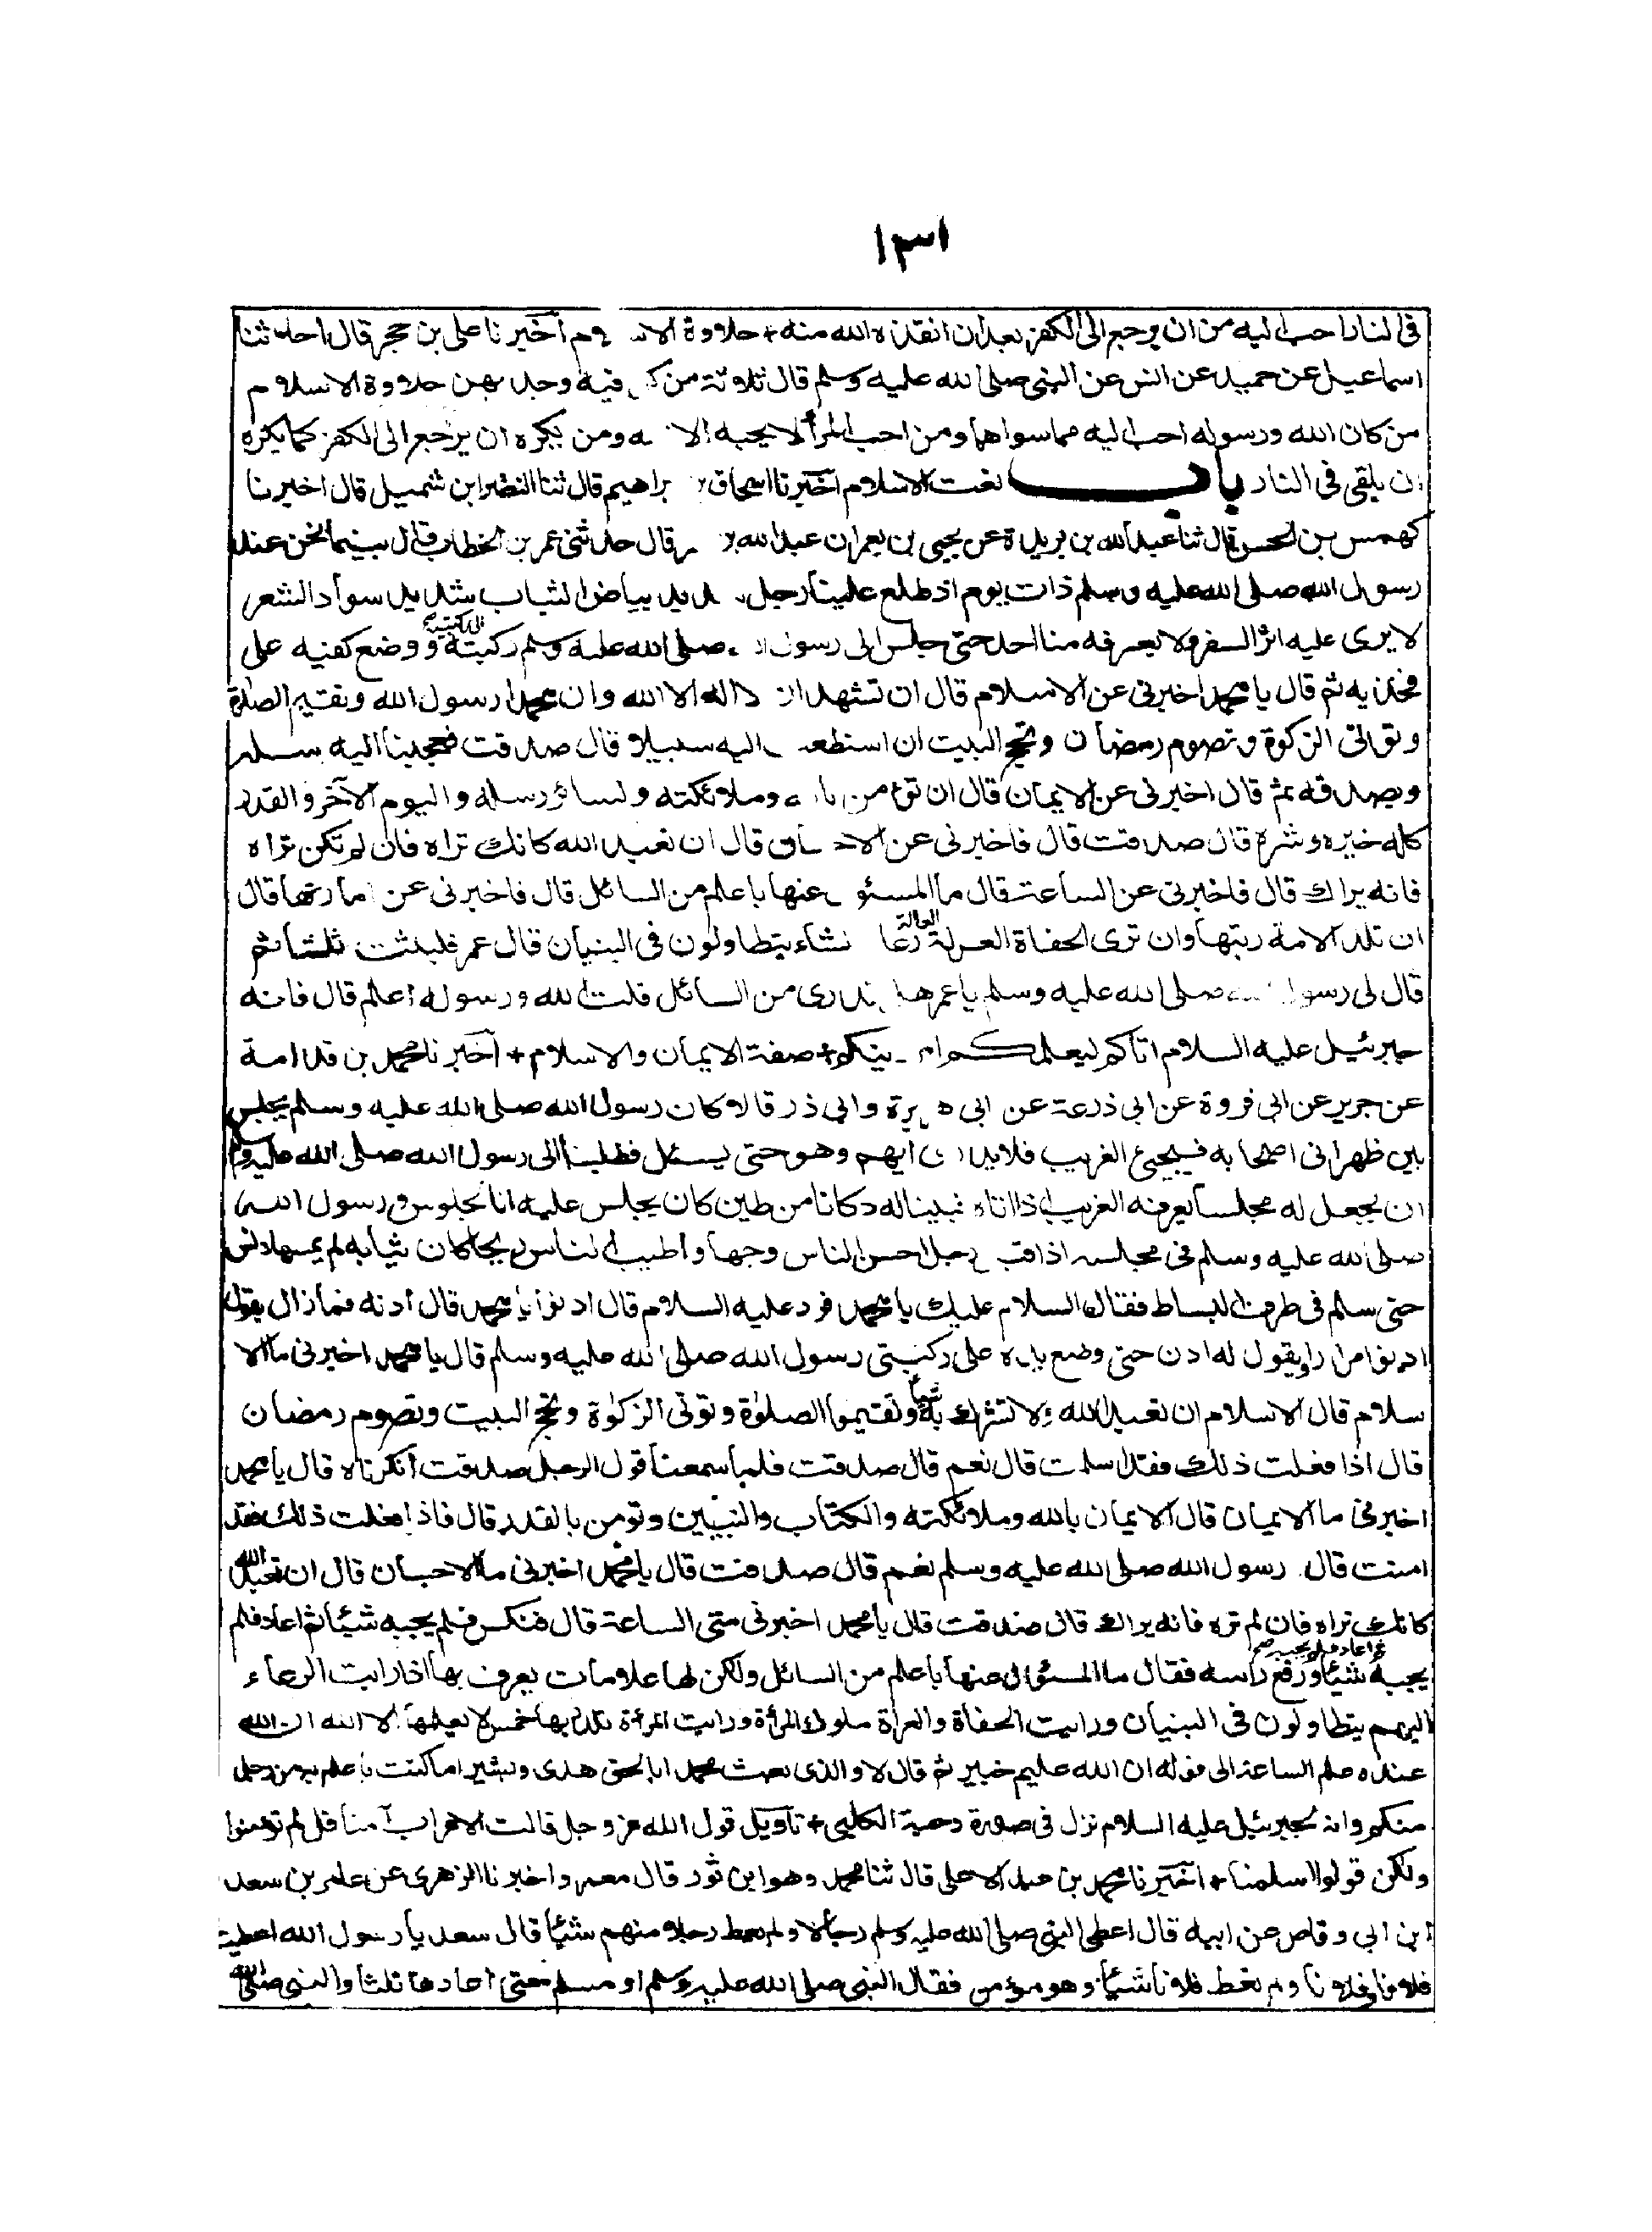 ١٣١
فى النار احب اليه من ان يرجع الى الكفر بعد ان انقذه الله منه + حلاوة الاسـ وم اخبرنا على بن حجر قال حدثنا
اسماعيل عن حميد عن انس عن النبى صلى الله عليه وسلم قال ثلاثة من كـ فيه وجد بهن حلاوة الاسلام
من كان الله ورسوله احب اليه مما سواهما ومن احب المرأ لا يحبه الا ـه ومن يكره ان يرجع الى الكفر كما يكره
ان يلقى فى النار باب نعت الاسلام اخبرنا اسحاق بـ براهيم قال ثنا النضر ابن شميل قال اخبرنا
كهمس بن الحسن قال ثنا عبد الله بن بريدة عن يحيى بن يعمر ان عبد الله بـ ـر قال حدثنى عمر بن الخطاب قال بينما نحن عند
رسول الله صلى الله عليه وسلم ذات يوم اذ طلع علينا رجل ـديد بياض الثياب شديد سواد الشعر
لا يرى عليه اثر السفر ولا يعرفه منا احد حتى جلس الى رسول ا صلى الله عليه وسلم ركبته و ووضع كفيه على
فخذيه ثم قال يا محمد اخبرنى عن الاسلام قال ان تشهد ان لا اله الا الله وان محمدا رسول الله وتقيم الصلوة
وتؤتى الزكوة وتصوم رمضان وتحج البيت ان استطعـ اليه سبيلا قال صدقت فعجبنا اليه يسئله
ويصدقه ثم قال اخبرنى عن الايمان قال ان تؤمن باـه وملائكته ورسله واليوم الآخر والقدر
كله خيره وشره قال صدقت قال فاخبرنى عن الاحـسان قال ان تعبد الله كانك تراه فان لم تكن تراه
فانه يراك قال فاخبرنى عن الساعة قال ما المسئو عنها باعلم من السائل قال فاخبرنى عن امارتها قال
ان تلد الامة ربتها وان ترى الحفاة العراة العالة رعا نشاء يتطاولون فى البنيان قال عمر فلبثت ثلثا ثم
قال لى رسول ـه صلى الله عليه وسلم يا عمر هل تدرى من السائل قلت الله ورسوله اعلم قال فانه
جبرئيل عليه السلام اتاكم ليعلمكم امر دينكم + صفة الايمان والاسلام + اخبرنا محمد بن قدامة
عن جرير عن ابى فروة عن ابى ذرعة عن ابى هـيرة وابى ذر قالا كان رسول الله صلى الله عليه وسلم يجلس
بين ظهرانى اصحابه فيجيئ الغريب فلا يدرى ايهم وهو حتى يسئل فطلبنا الى رسول الله صلى الله عليه وسلم
ان يجعل له مجلسا يعرفه الغريب اذا اتاه فبنينا له دكانا من طين كان يجلس عليه انا لجلوس ورسول الله
صلى الله عليه وسلم فى مجلسه اذ اقبـ رجل احسن الناس وجها واطيب الناس ريحا كان ثيابه لم يمسها دنس
حتى سلم فى طرف البساط فقال السلام عليك يا محمد فرد عليه السلام قال ادنو يا محمد قال ادنه فما زال يقول
ادنو مرارا ويقول له ادن حتى وضع يده على ركبتى رسول الله صلى الله عليه وسلم قال يا محمد اخبرنى ما الا
سلام قال الاسلام ان تعبد الله ولا تشرك به شيئا وتقيموا الصلوة وتوتى الزكوة وتحج البيت وتصوم رمضان
قال اذا فعلت ذلك فقد اسلمت قال نعم قال صدقت فلما سمعنا قول الرجل صدقت انكرناه قال يا محمد
اخبرنى ما الايمان قال الايمان بالله وملائكته والكتاب والنبيين وتومن بالقدر قال فاذا فعلت ذلك فقد
امنت قال رسول الله صلى الله عليه وسلم نعم قال صدقت قال يا محمد اخبرنى ما الاحسان قال ان تعبد الله
كانك تراه فان لم تره فانه يراك قال صدقت قال يا محمد اخبرنى متى الساعة قال فنكس فلم يجبه شيئا ثم اعاد فلم
يجبه شيئا ثم اعاد فلم يجبه ورفع راسه فقال ما المسئول عنها باعلم من السائل ولكن لها علامات يعرف بها اذا رايت الرعاء
البهم يتطاولون فى البنيان ورايت الحفاة والعراة ملوك ورايت المرأة تلد ربها خمس لا يعلمها الا الله ان الله
عنده علم الساعة الى قوله ان الله عليم خبير ثم قال لا والذى بعث محمدا بالحق هدى وبشيرا ما كنت باعلم به من رجل
منكم وانه لجبرئيل عليه السلام نزل فى صورة دحية الكلبى + تاويل قول الله عز وجل قالت الاعراب آمنا قل لم تؤمنوا
ولكن قولوا اسلمنا + اخبرنا محمد بن عبد الاعلى قال ثنا محمد وهو ابن ثور قال معمر واخبرنا الزهرى عن عامر بن سعد
ابن ابى وقاص عن ابيه قال اعطى النبى صلى الله عليه وسلم رجالا ولم يعط رجلا منهم شيئا قال سعد يا رسول الله اعطيت
فلانا وفلانا ولم تعط فلانا شيئا وهو مؤمن فقال النبى صلى الله عليه وسلم او مسلم حتى اعادها ثلثا والنبى صلى الله